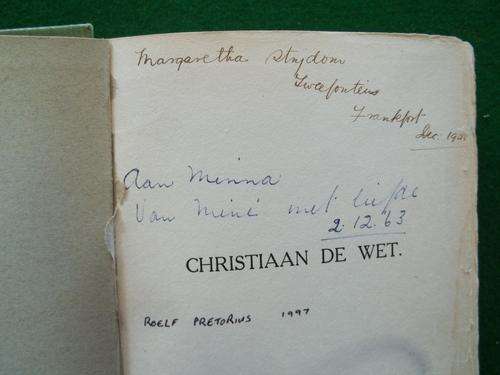 Margaretha Strydom
Tweefontein
Frankfort
Dec.
Aan Minna
Van Miné met liefde
2.12.63
CHRISTIAAN DE WET.
ROELF PRETORIUS 1997